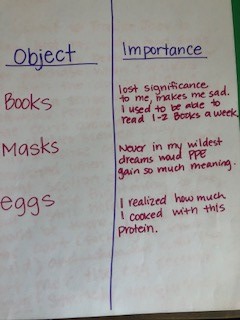 Object Importance
Books
lost significance
to me, makes me sad.
I used to be able to
read 1-2 Books a week
Masks
Never in my wildest
dreams would PPE
gain so much meaning.
eggs
I realized how much
I cooked with this
protein.